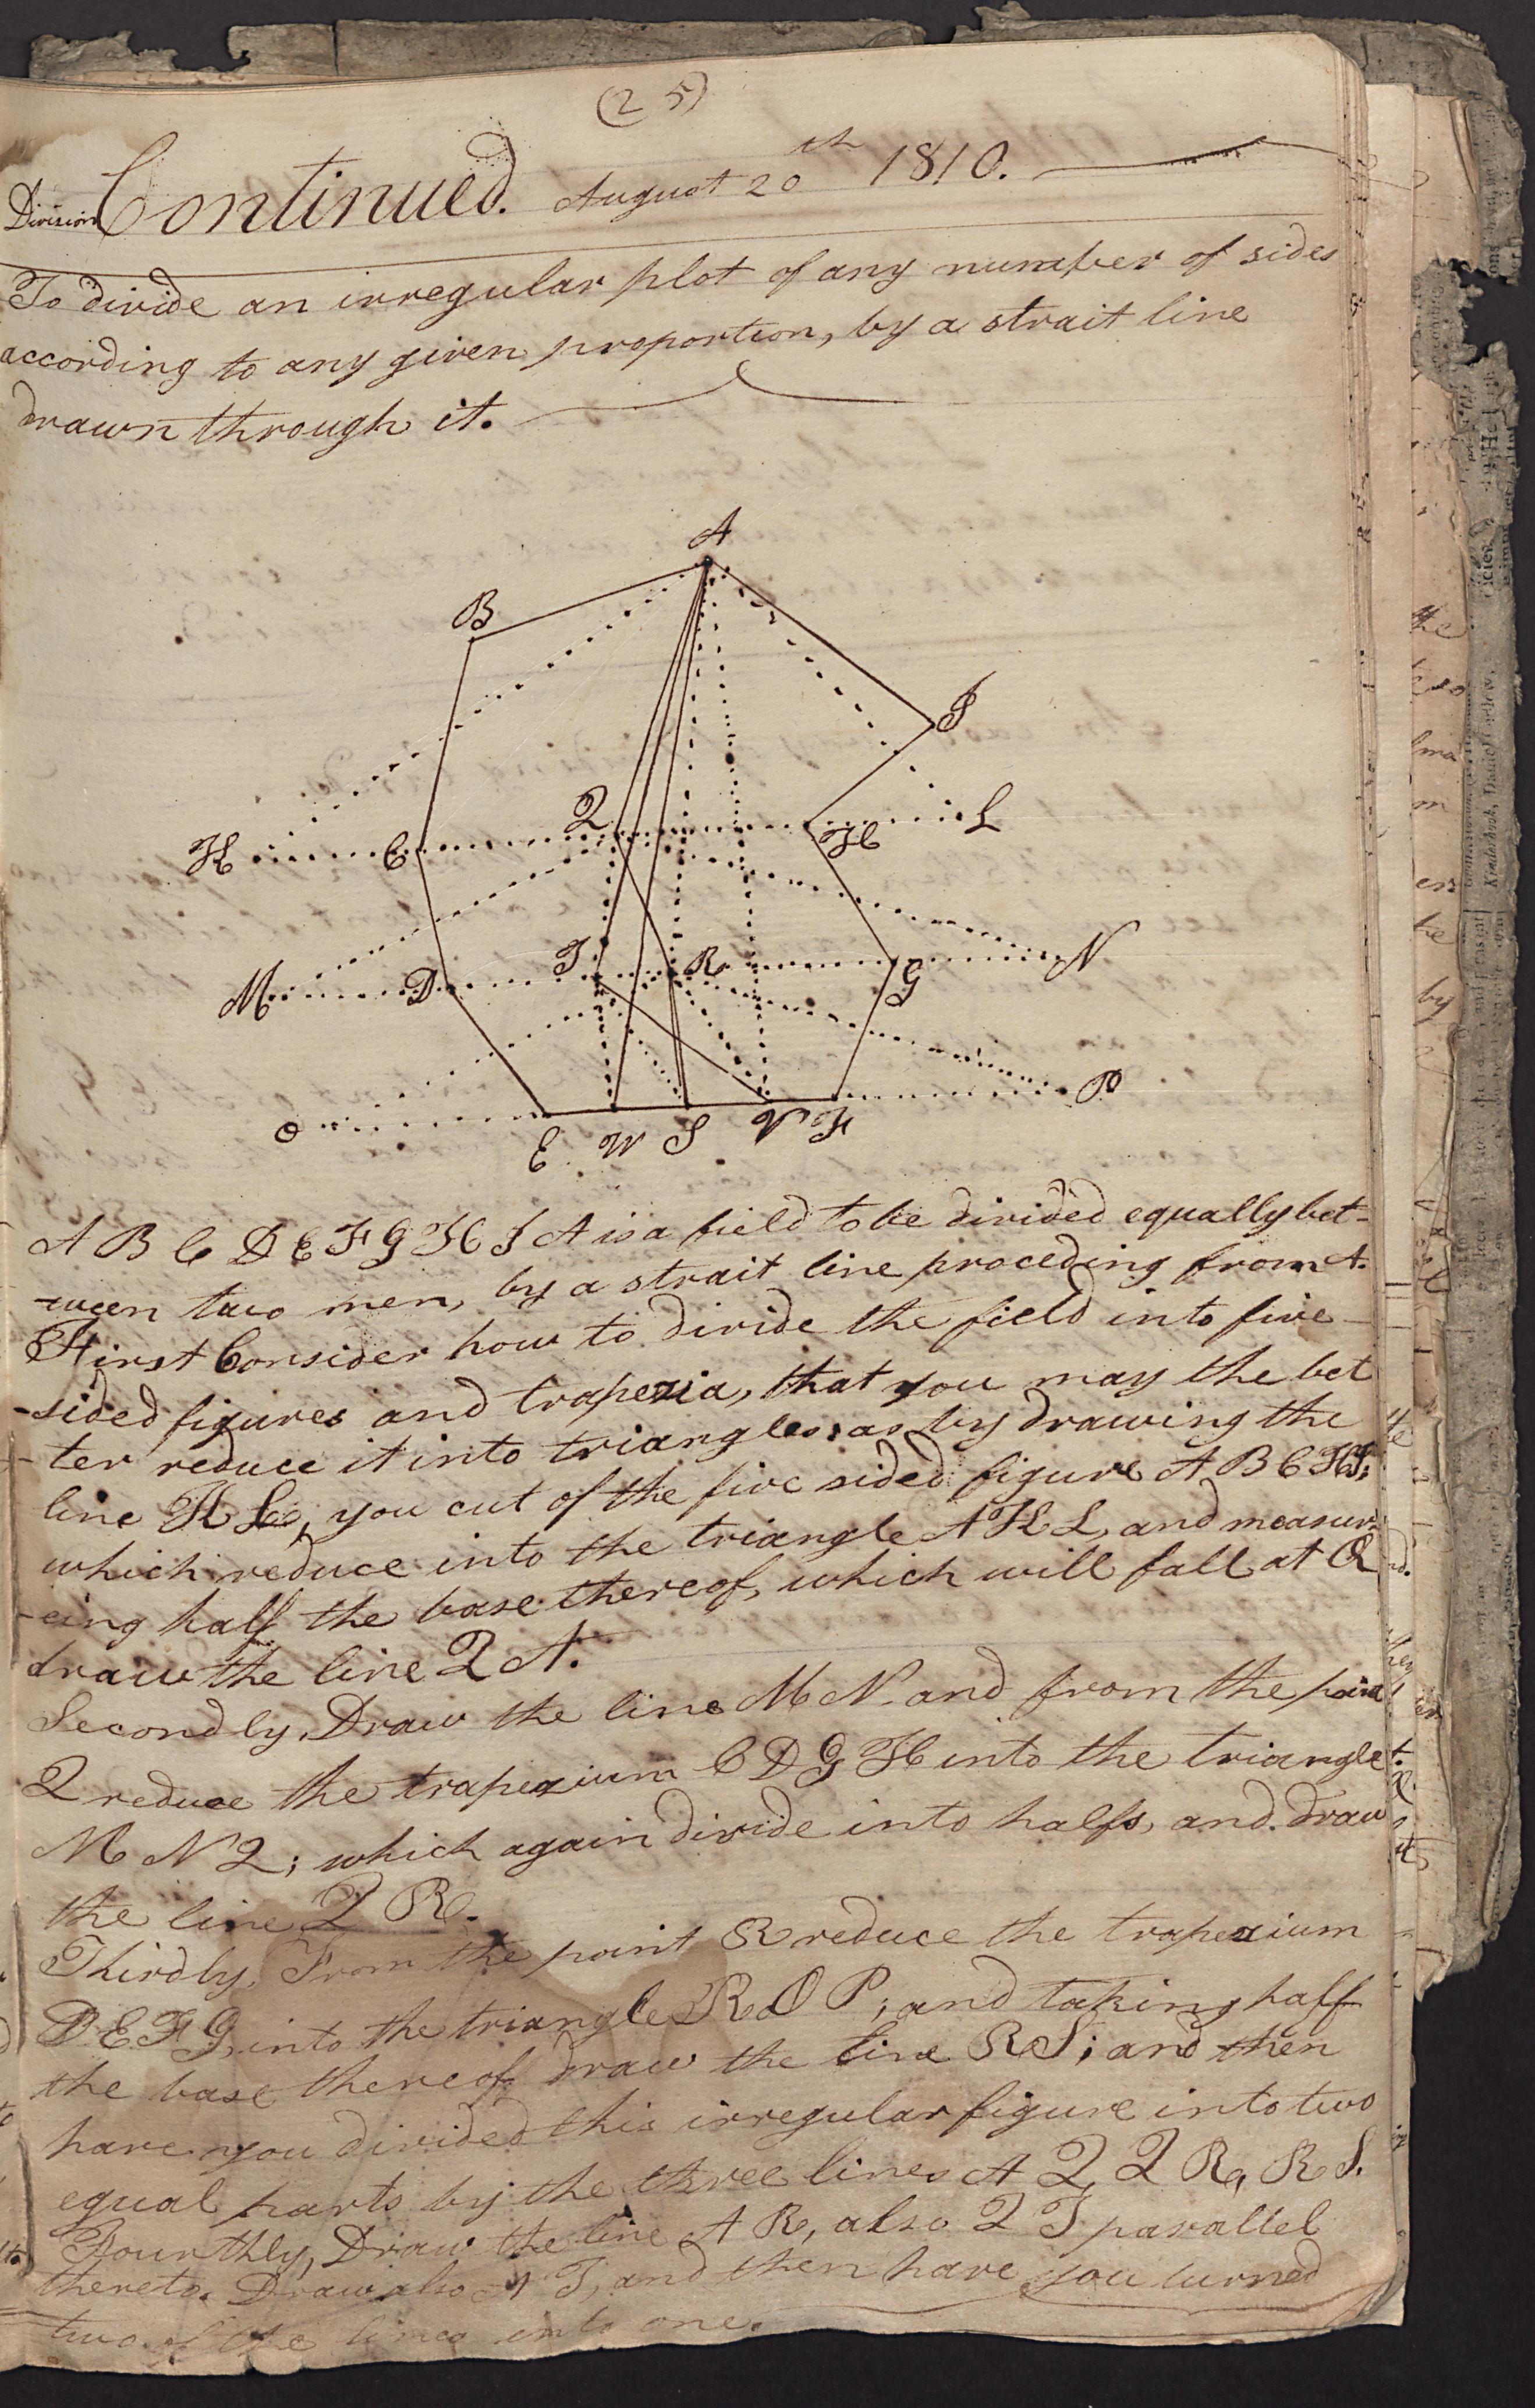 (25)
Division Continued. August 20th 1810.
To divide an irregular plot of any number of sides
according to any given proportion, by a strait line
drawn through it.
A
B
I
Q
L
K
C
H
T
R
N
M
D
G
O
P
E W S V F
A B C D E F G H I A is a field to be divided equally bet-
-ween two men, by a strait line proceding from A.
First Consider how to divide the field into five
-sided figures and trapezia, that you may the bet
-ter reduce it into triangles: as by drawing the
line K L, you cut of the five sided figure A B C H I;
which reduce into the triangle A K L, and measur-
-eing half the base thereof, which will fall at Q
draw the line Q A.
Secondly, Draw the line M N and from the point
Q reduce the trapezium C D G H into the triangle
M N Q; which again divide into halfs, and draw
the line Q R.
Thirdly, From the point R reduce the trapezium
D E F G, into the triangle R O P; and taking half
the base thereof draw the line R S; and then
have you divided this irregular figure into two
equal parts by the three lines A Q, Q R, R S.
Fourthly, Draw the line A R, also Q T parallel
thereto. Draw also A T, and then have you turned
two of the lines into one.